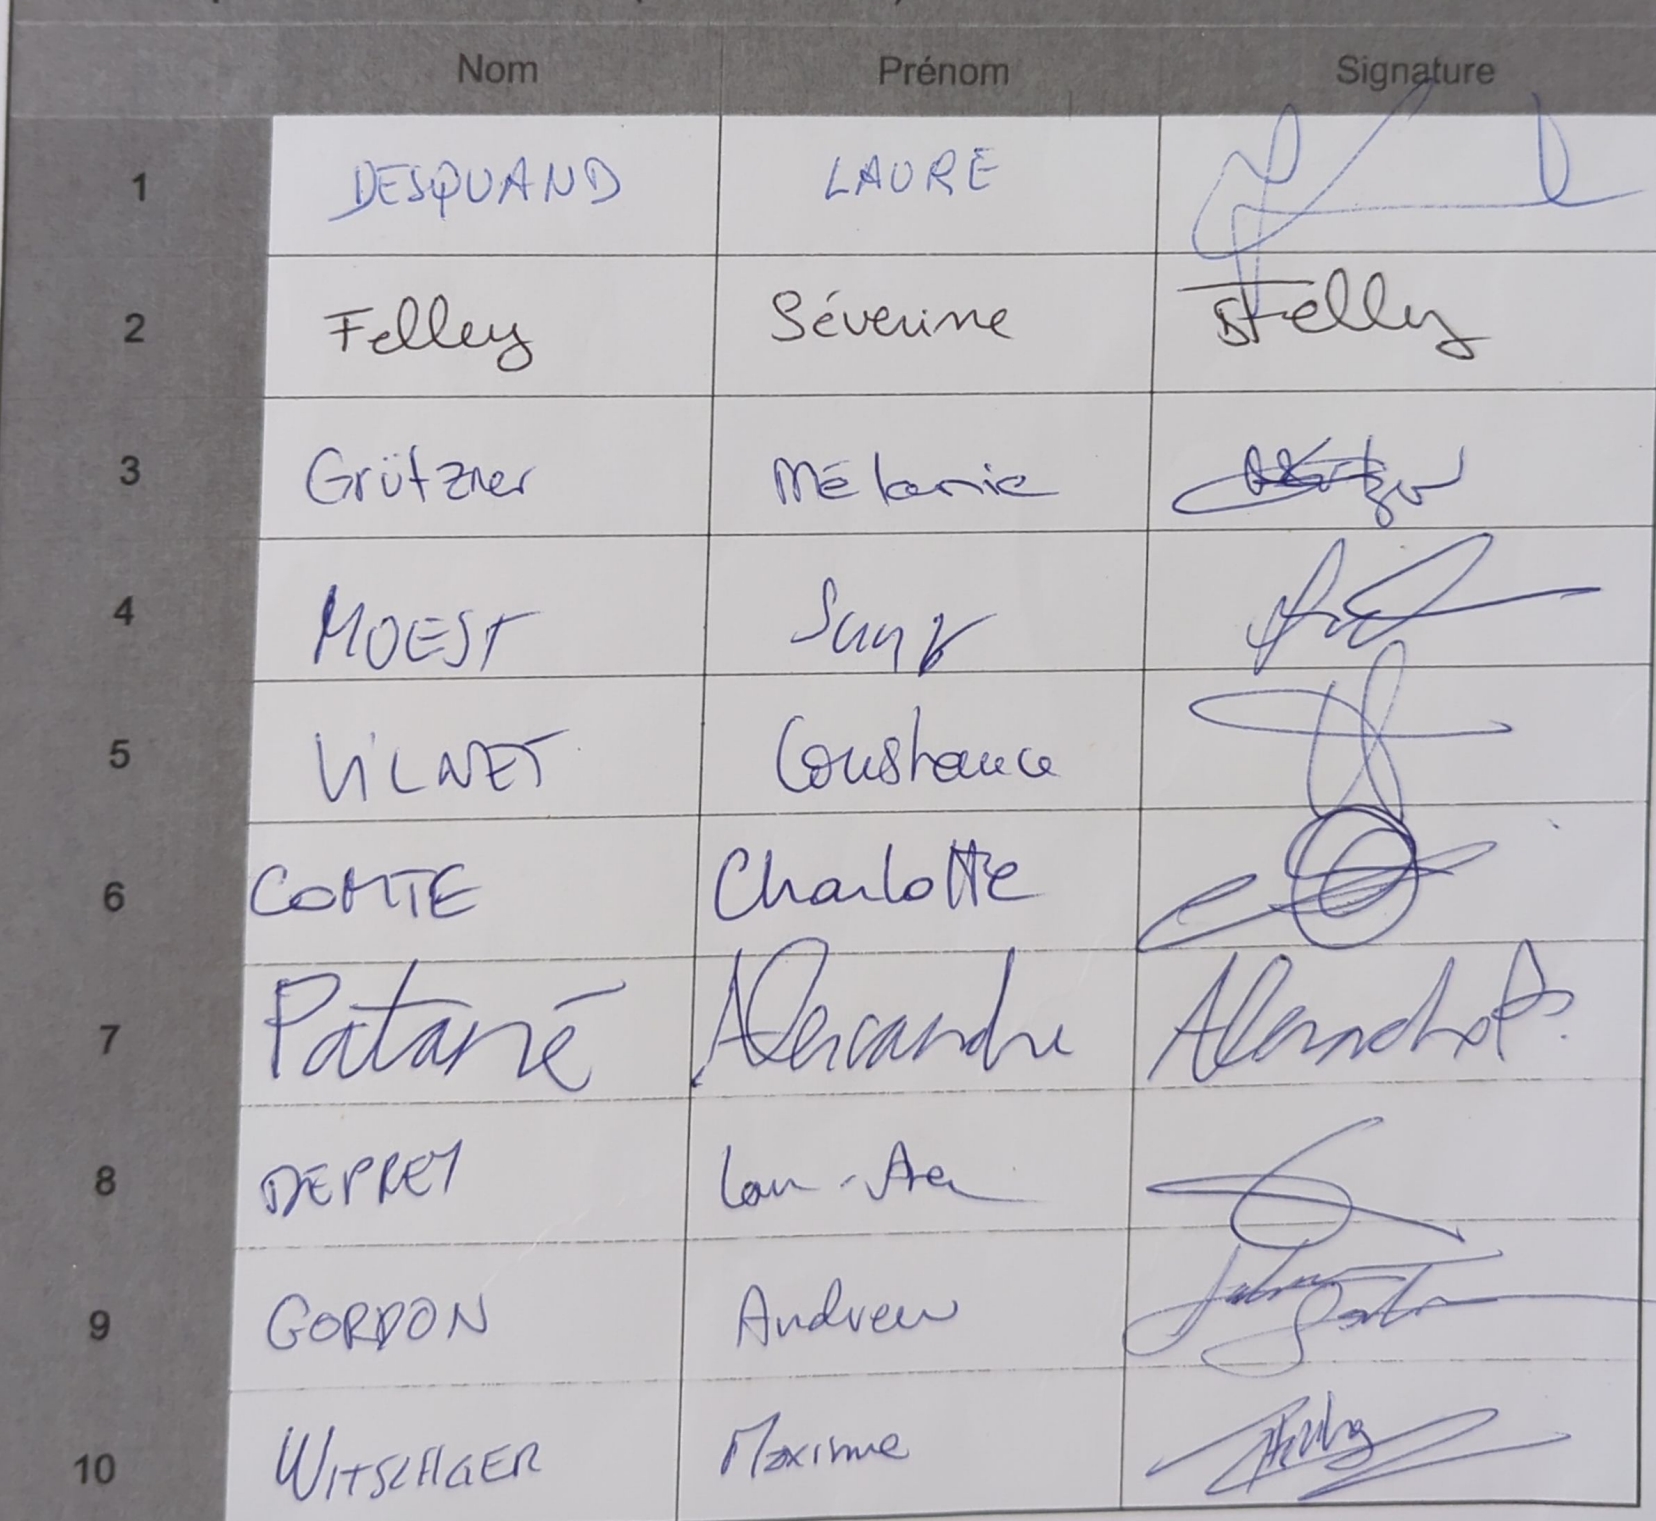 Nom Prénom Signature
1 DESQUAND LAURE
2 Felley Séverine SFelley
3 Grützner Mélanie
4 MOEST Suny
5 VILNET Constance
6 COMTE Charlotte
7 Patané Alexandre
8 DEPREY
9 GORDON Andrew
10 WITSCHGER Maxime